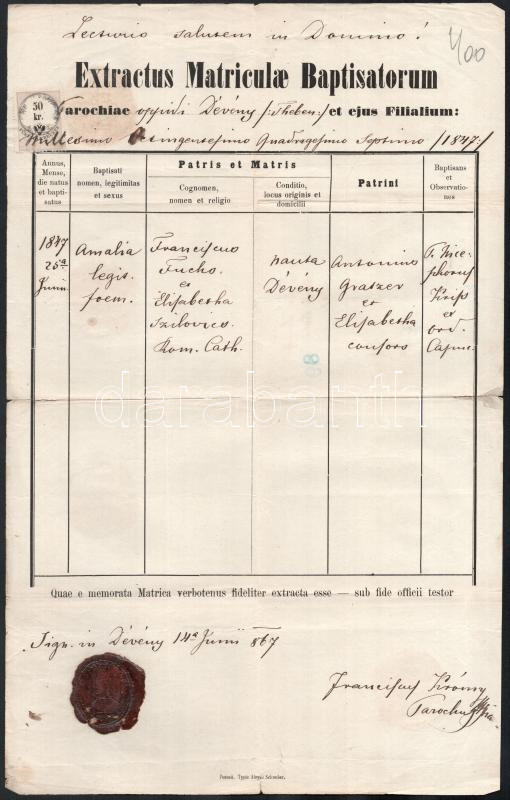 Lecturis salutem in Domino!
400
Extractus Matriculæ Baptisatorum
50
kr.
Parochiae oppidi Dévény /:Theben:/ et ejus Filialium:
Millesimo Octingentesimo Quadragesimo Septimo /1847:/
Annus, Mense, die natus et bapti- satus
Baptisati nomen, legitimitas et sexus
Patris et Matris
Cognomen, nomen et religio
Conditio, locus originis et domicilii
Patrini
Baptisans et Observatio- nes
1847
25a
Junii
Amalia
legit.
foem.
Franciscus
Fuchs.
et
Elisabetha
Szilovics
Rom. Cath.
nauta
Dévény
Antonius
Gratzer
et
Elisabetha
consors
P. Nice-
phorus
Kriss
ex
ord.
Capuc.
98
darabanth
Quae e memorata Matrica verbotenus fideliter extracta esse — sub fide officii testor
Sign. in Dévény 14a Junii 867
Franciscus
Parochus
Posonii. Typis Aloysii Schreiber.